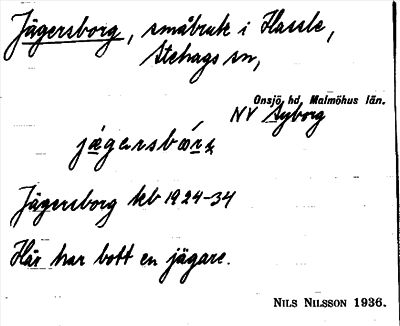 Jägersborg, småbruk i Hassle,
Stehags sn,
Onsjö hd, Malmöhus län.
NV Nyborg
Jägersborg kb 1924-34
Här har bott en jägare.
NILS NILSSON 1936.